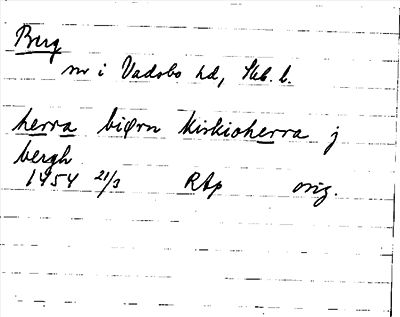 Berg
nv i Vadsbo hd, Skb. l.
herra biørn kirkioherra j
bergh
1454 21/3 RAp orig.